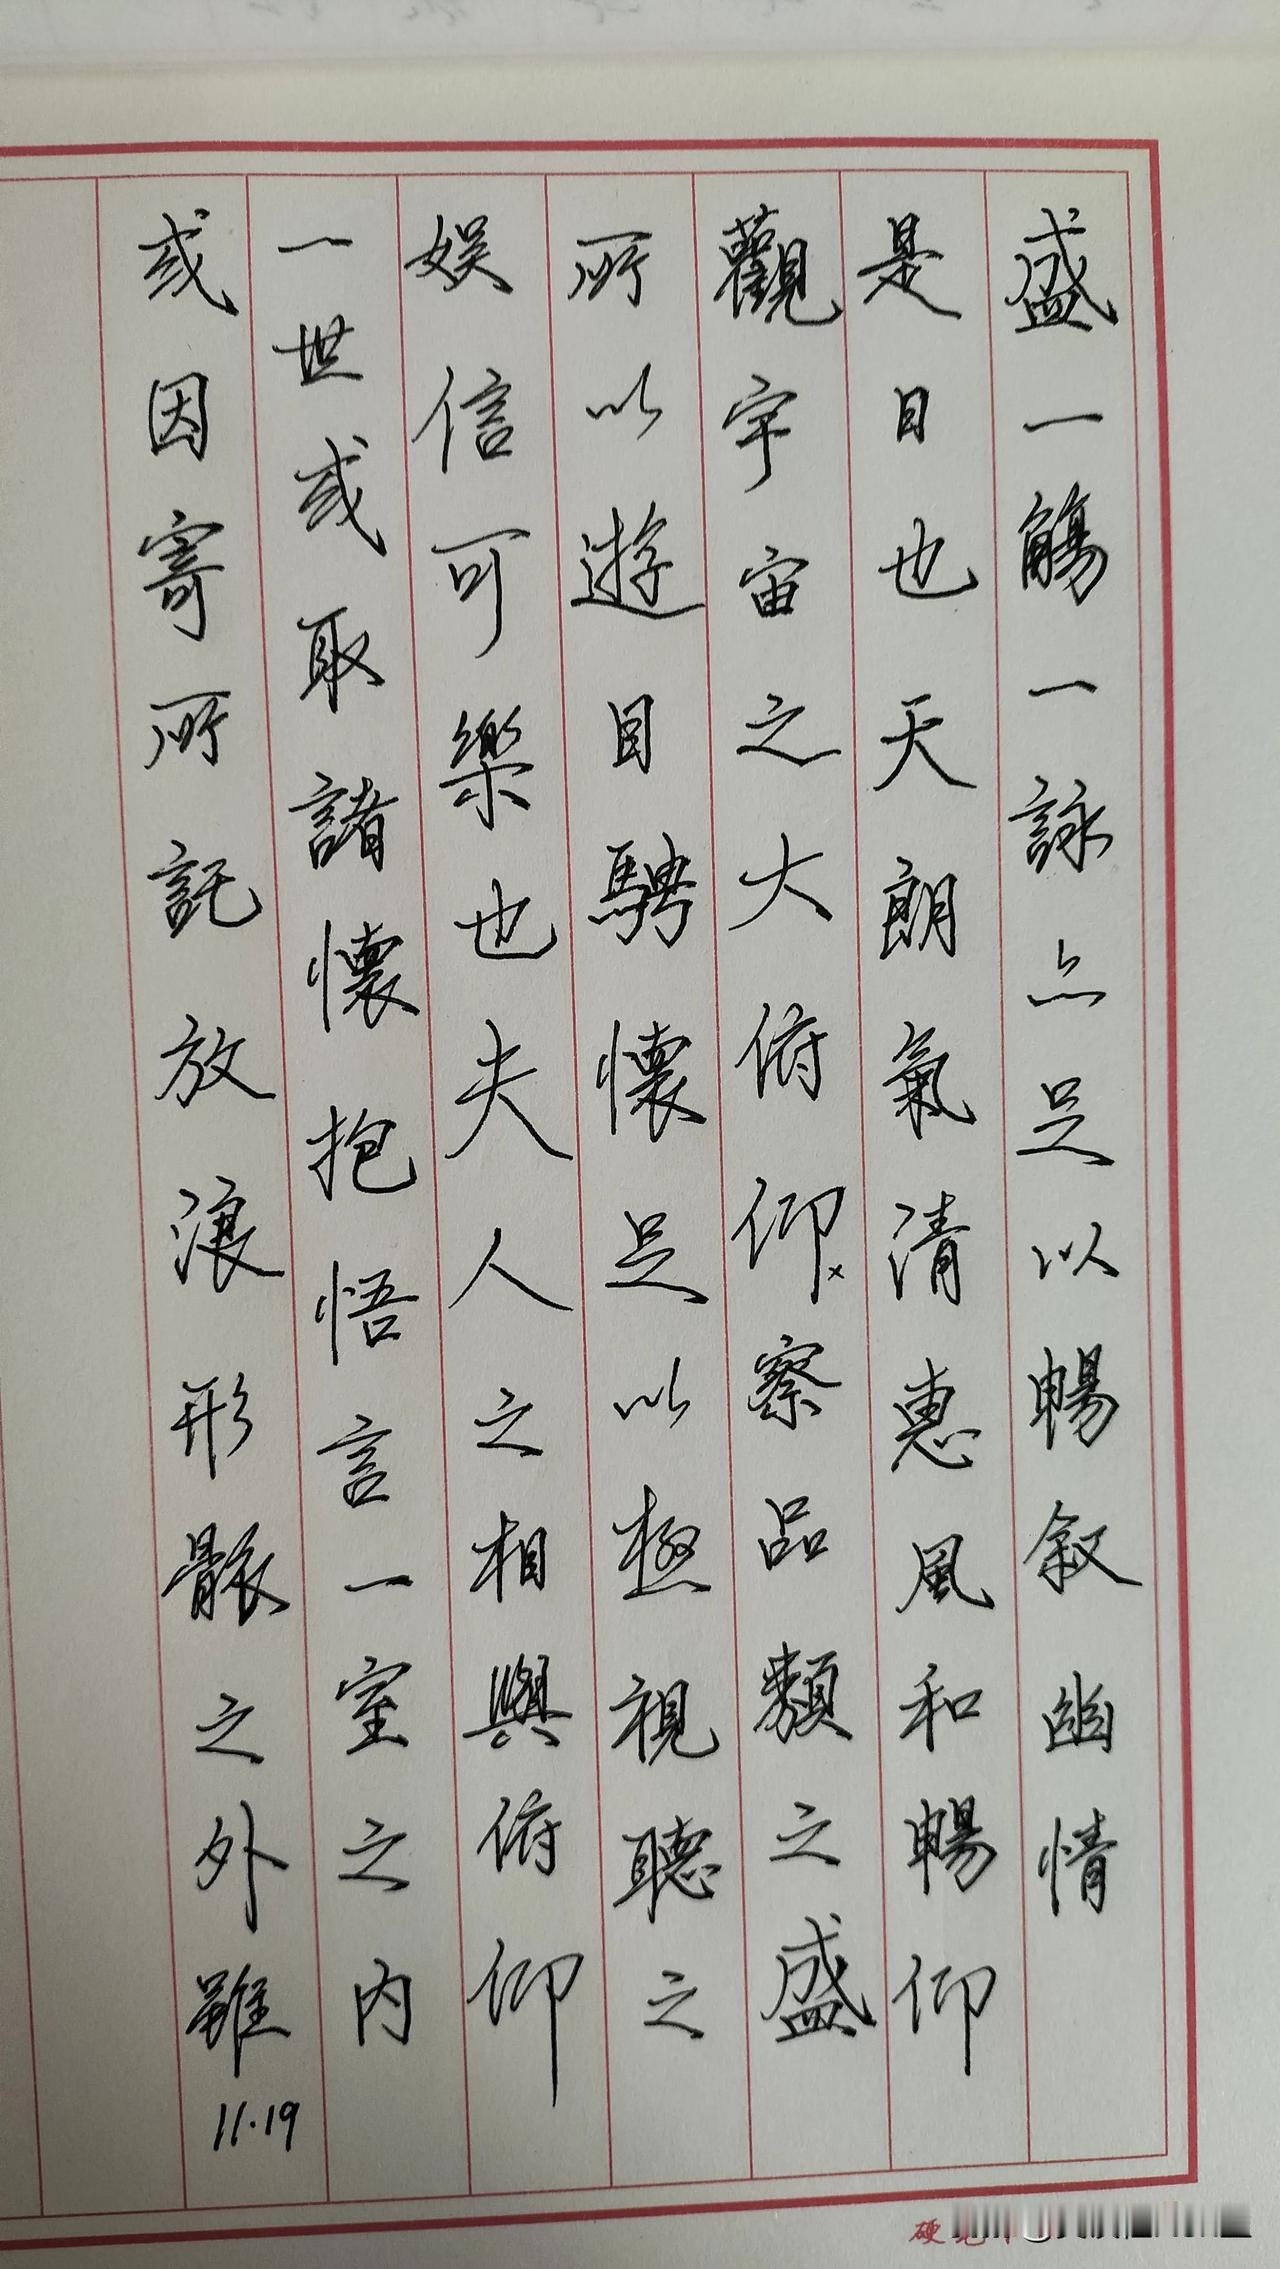 盛一觴一詠亦足以暢叙幽情
是日也天朗氣清惠風和暢仰
觀宇宙之大俯仰×察品類之盛
所以遊目騁懷足以極視聽之
娛信可樂也夫人之相與俯仰
一世或取諸懷抱悟言一室之內
或因寄所託放浪形骸之外雖
11.19
硬